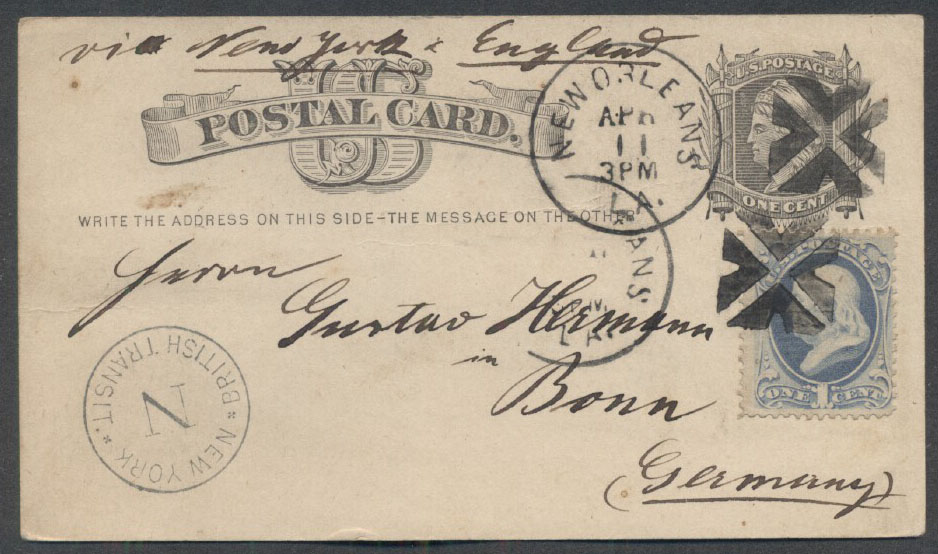 via New York & England
US
POSTAL CARD.
WRITE THE ADDRESS ON THIS SIDE-THE MESSAGE ON THE OTHER
NEW ORLEANS
APR
11
3PM
LA.
U.S. POSTAGE
ONE CENT
ANS
LA
Herrn
Gustav Hermann
in
Bonn
(Germany)
NEW YORK * BRITISH TRANSIT. *
N
ONE 1 CENT